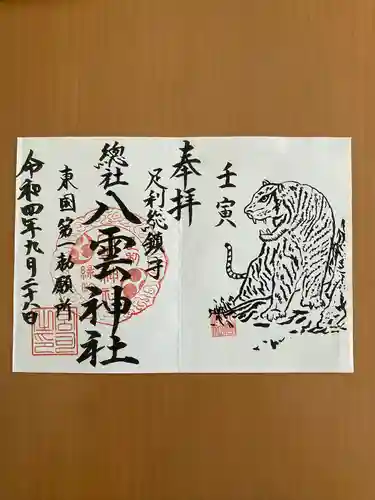 壬寅
奉拝
足利総鎮守
總社
八雲神社
東国第一勅願所
令和四年九月二十八日